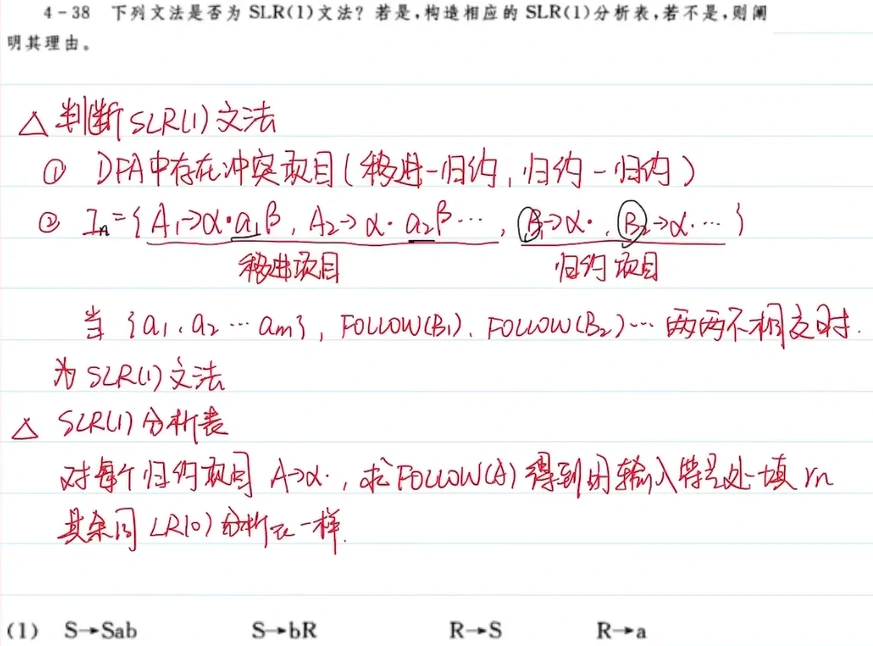 4-38 下列文法是否为SLR(1)文法？若是,构造相应的SLR(1)分析表,若不是,则阐
明其理由。
△ 判断SLR(1)文法
① DFA中存在冲突项目(移进-归约,归约-归约)
② In={A₁→α·a₁β, A₂→α·a₂β…, B₁→α·, B₂→α·…}
移进项目 归约项目
当{a₁,a₂…am}, FOLLOW(B₁), FOLLOW(B₂)…两两不相交时.
为SLR(1)文法
△ SLR(1)分析表
对每个归约项目A→α·,求FOLLOW(A)得到的输入符号处填rn
其余同LR(0)分析表一样.
(1) S→Sab S→bR R→S R→a